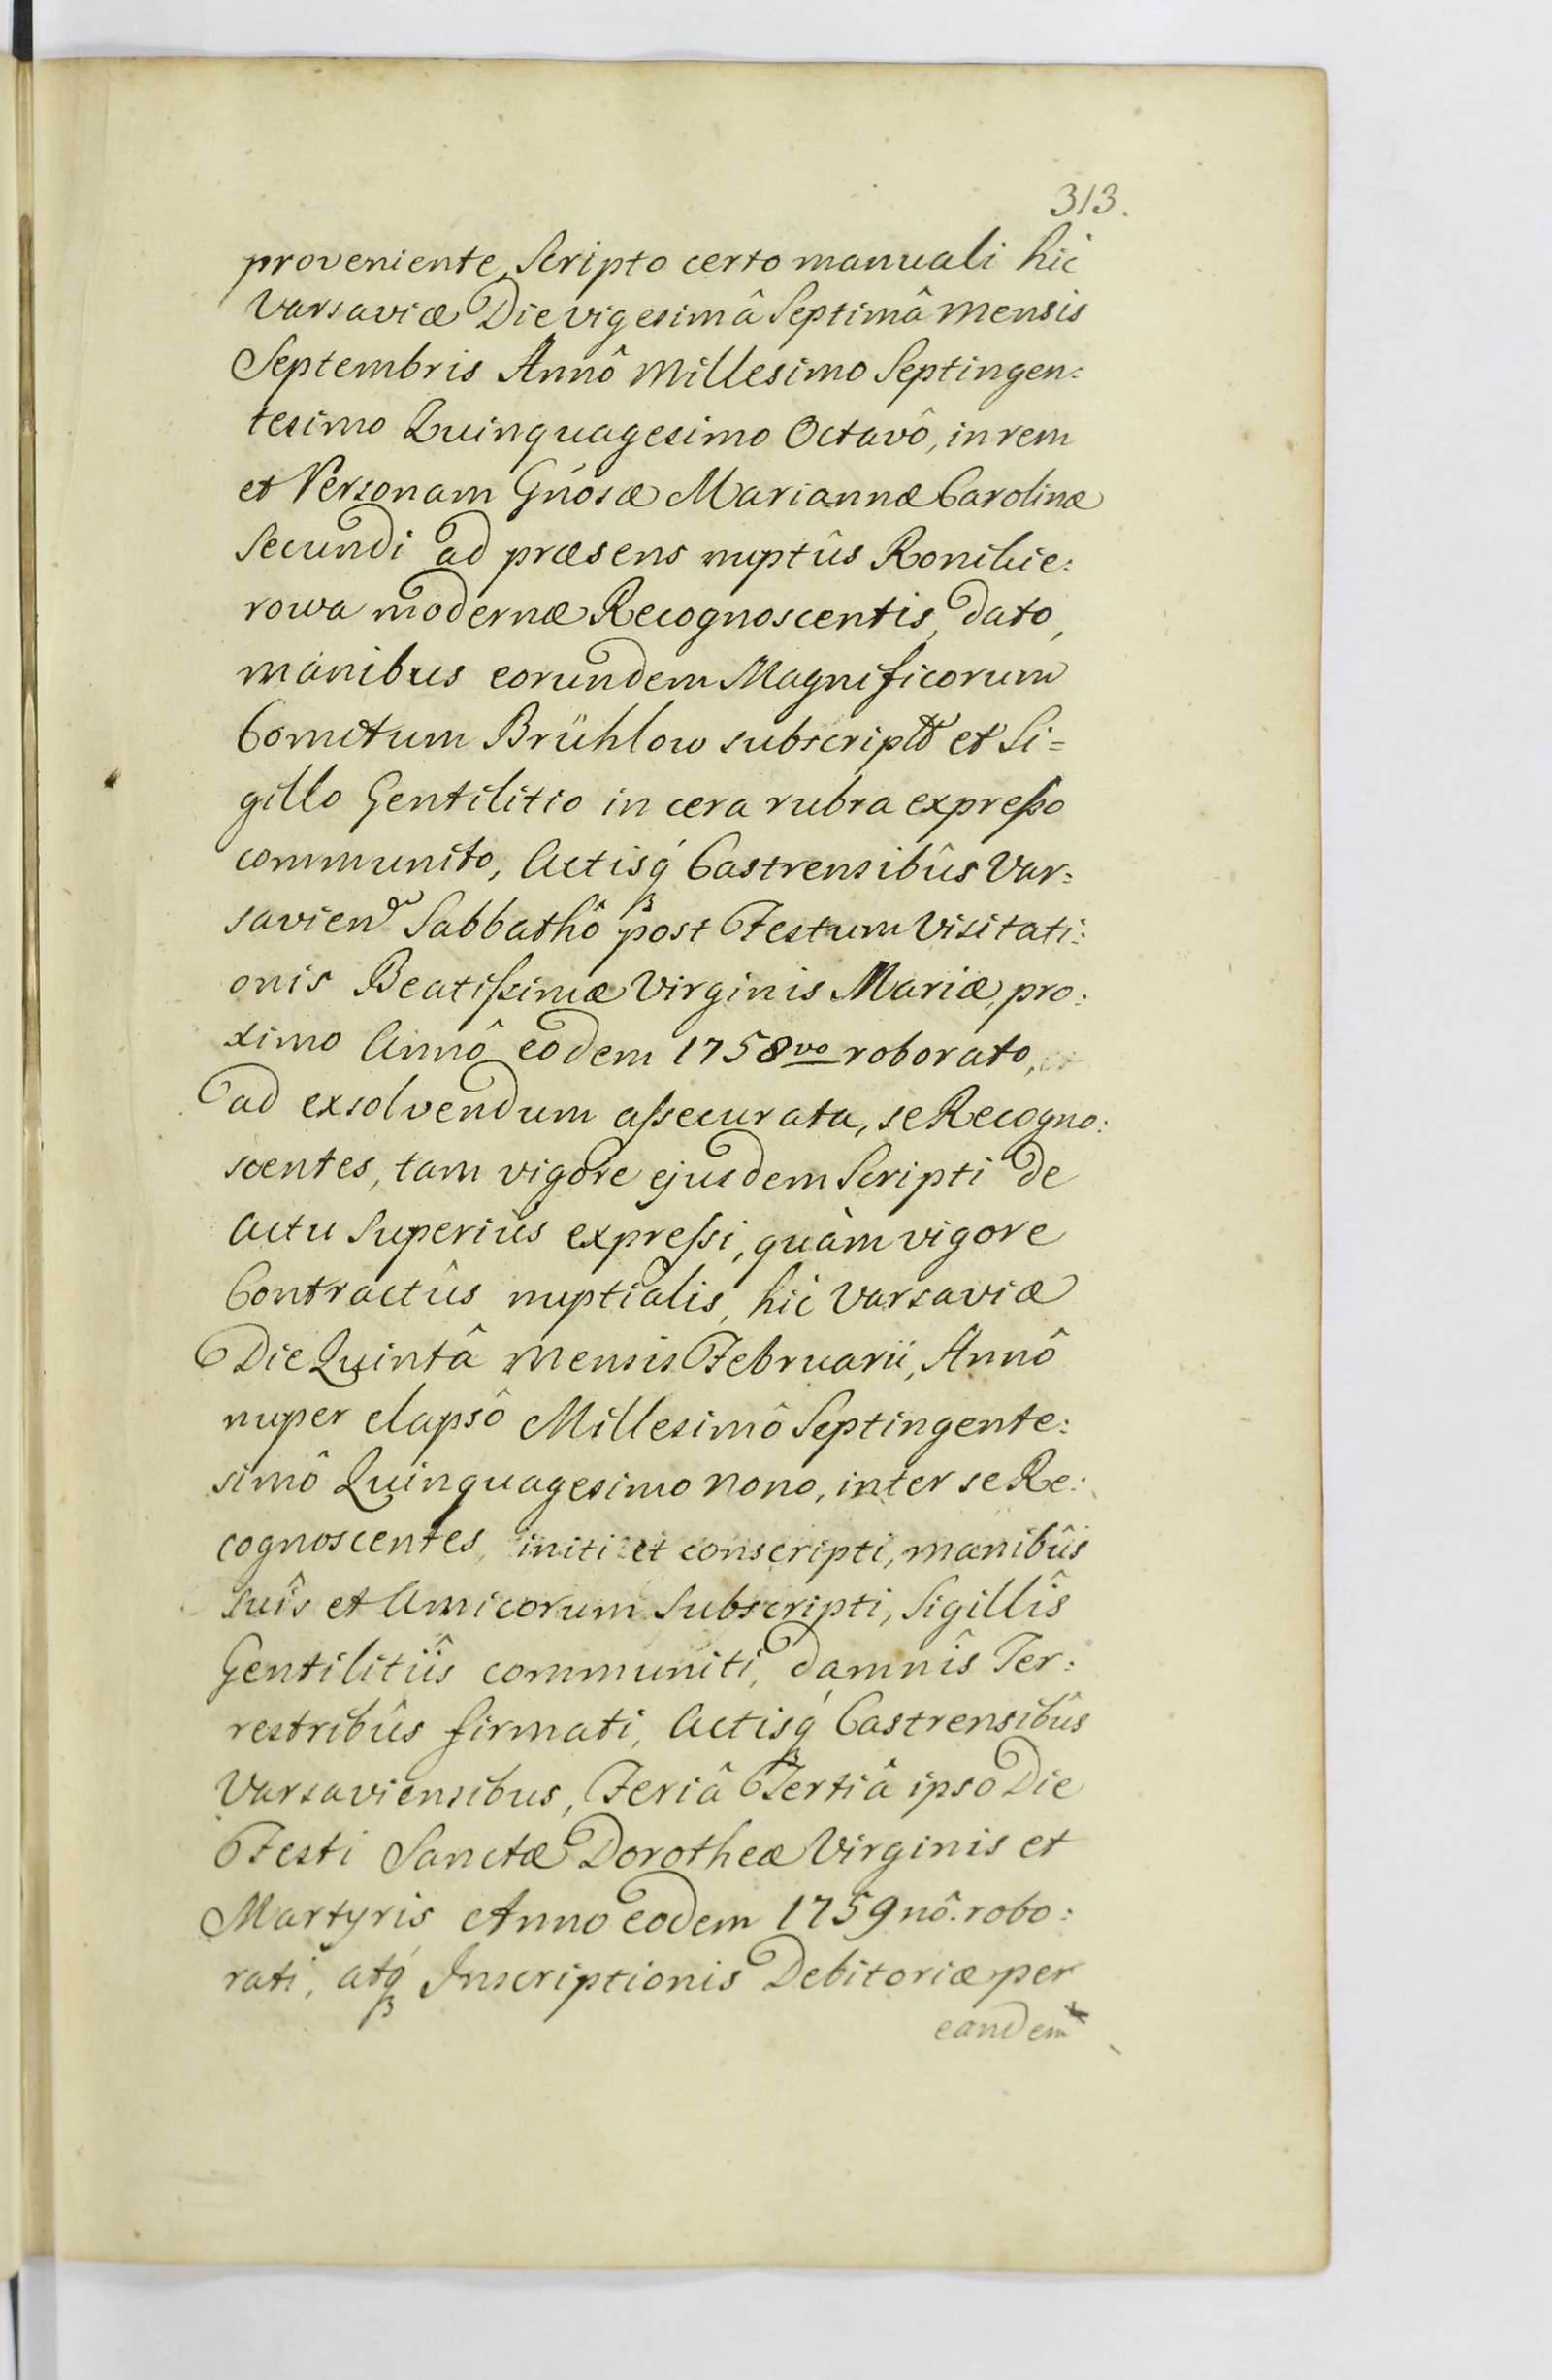 313.
proveniente, Scripto certo manuali hic
Varsaviæ Die vigesimâ Septimâ Mensis
Septembris Annô Millesimo Septingen:
tesimo Quinquagesimo Octavô, in rem
et Personam Gnosæ Mariannæ Carolinæ
Secundi ad præsens nuptûs Ronikie:
rowa modernæ Recognoscentis, dato,
manibus eorundem Magnificorum
Comitum Brühlow subscripto et Si=
gillo Gentilitio in cera rubra expresso
communito, Actisq́ Castrensibûs Var:
savien Sabbathô post Festum Visitati:
onis Beatissimæ Virginis Mariæ, pro:
ximo Annô eodem 1758vo roborato, et
ad exsolvendum assecurata, se Recogno:
scentes, tam vigore ejusdem Scripti de
Actu Superiûs expressi, quàm vigore
Contractûs nuptialis, hic Varsaviæ
Die Quintâ Mensis Februarii, Annô
nuper elapsô Millesimô Septingente:
simô Quinquagesimo Nono, inter se Re:
cognoscentes, initi et conscripti, manibûs
suîs et Amicorum Subscripti, Sigillîs
Gentilitiîs communiti, damnîs Ter:
restribûs firmati, Actisq́ Castrensibûs
Varsaviensibus, Feriâ Tertiâ ipso Die
Festi Sanctæ Dorotheæ Virginis et
Martyris Anno eodem 1759nô. robo:
rati, atq́ Inscriptionis Debitoriæ per
eandem